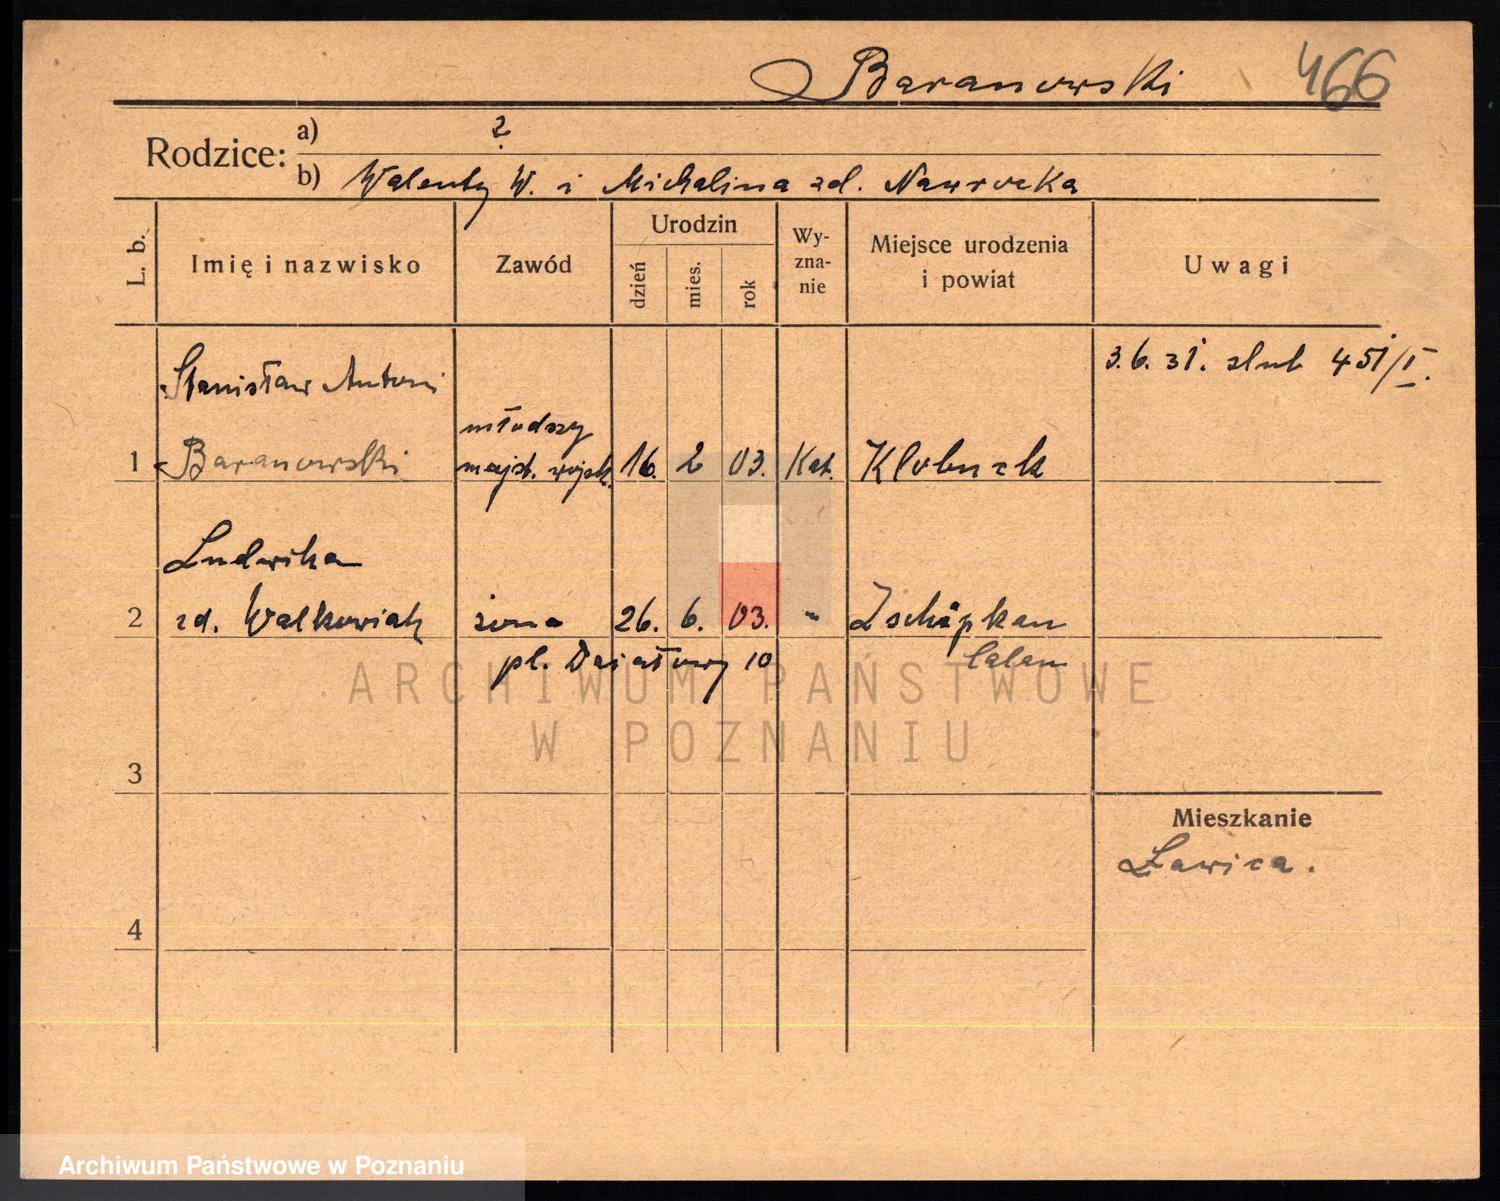 Baranowski 466
Rodzice:
a) ?
b) Walenty W. i Michalina zd. Nawrocka
L. b.
Imię i nazwisko
Zawód
Urodzin
dzień
mies.
rok
Wy-
zna-
nie
Miejsce urodzenia
i powiat
Uwagi
Stanisław Antoni
3.6.31. ślub 451/I.
młodszy
1 Baranowski majst. wojsk. 16. 2 03. Kat. Kłobuck
Ludwika
2 zd. Walkowiak żona 26. 6. 03. - Zschipkau
pl. Działowy 10
Calau
ARCHIWUM PAŃSTWOWE
W POZNANIU
3
Mieszkanie
Ławica.
4
Archiwum Państwowe w Poznaniu